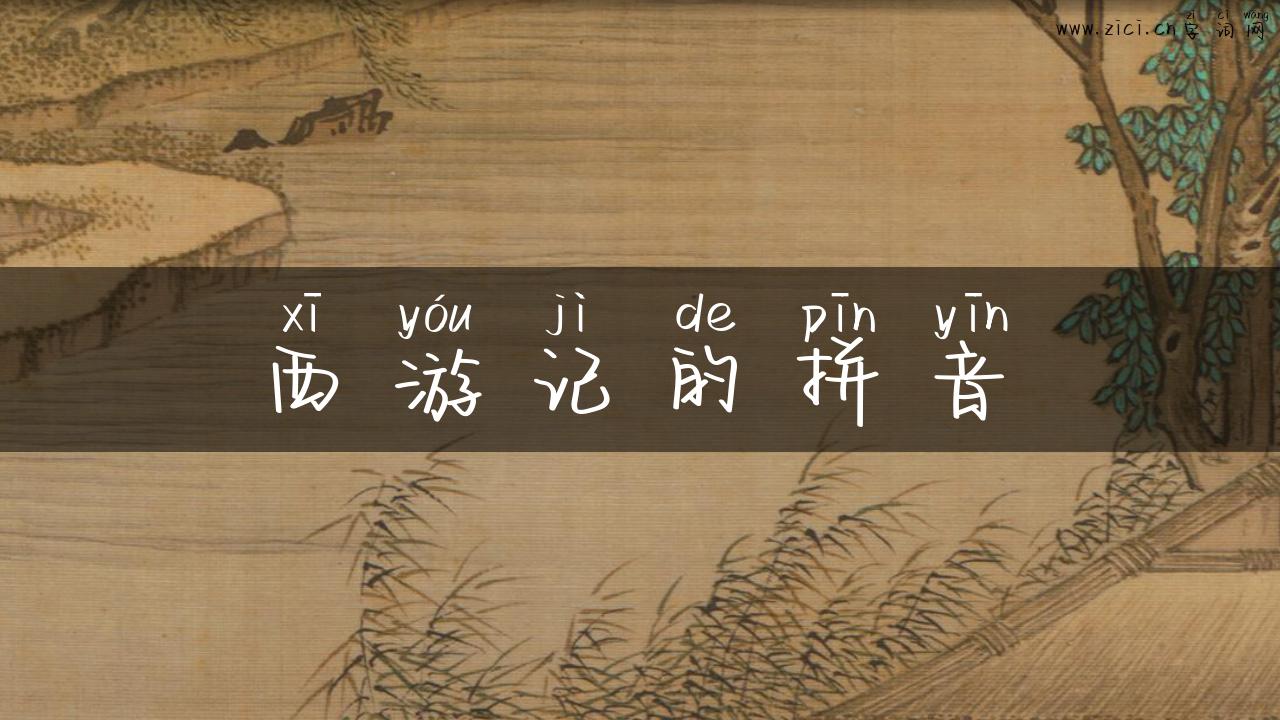 zì cí wǎng
www.zici.cn字词网
xī yóu jì de pīn yīn
西游记的拼音